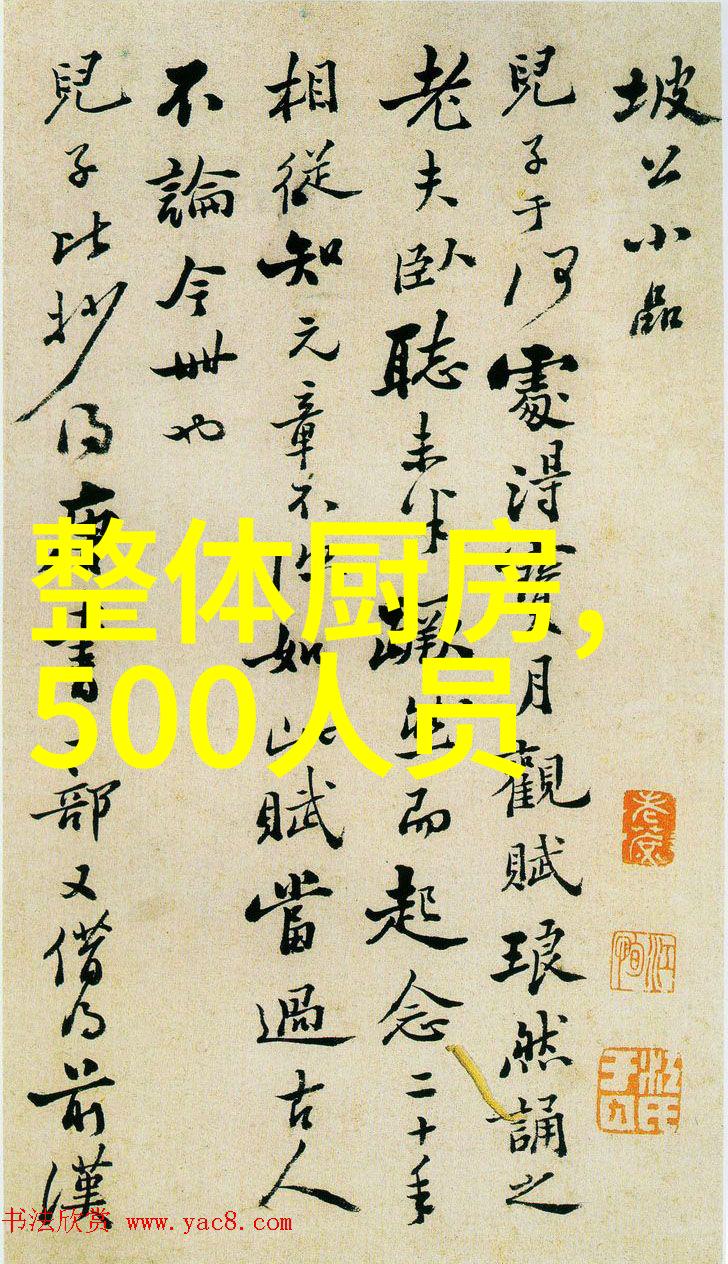 坡公小品
兒子于何處得寶月觀賦琅然誦之
老夫臥聽未半然而起念二十年
相從知元章不如此賦當過古人
不論今世也
兒子比抄得唐書一部又借得前漢
整体厨房,
500人员
老蓮
书法欣赏 www.yac8.com